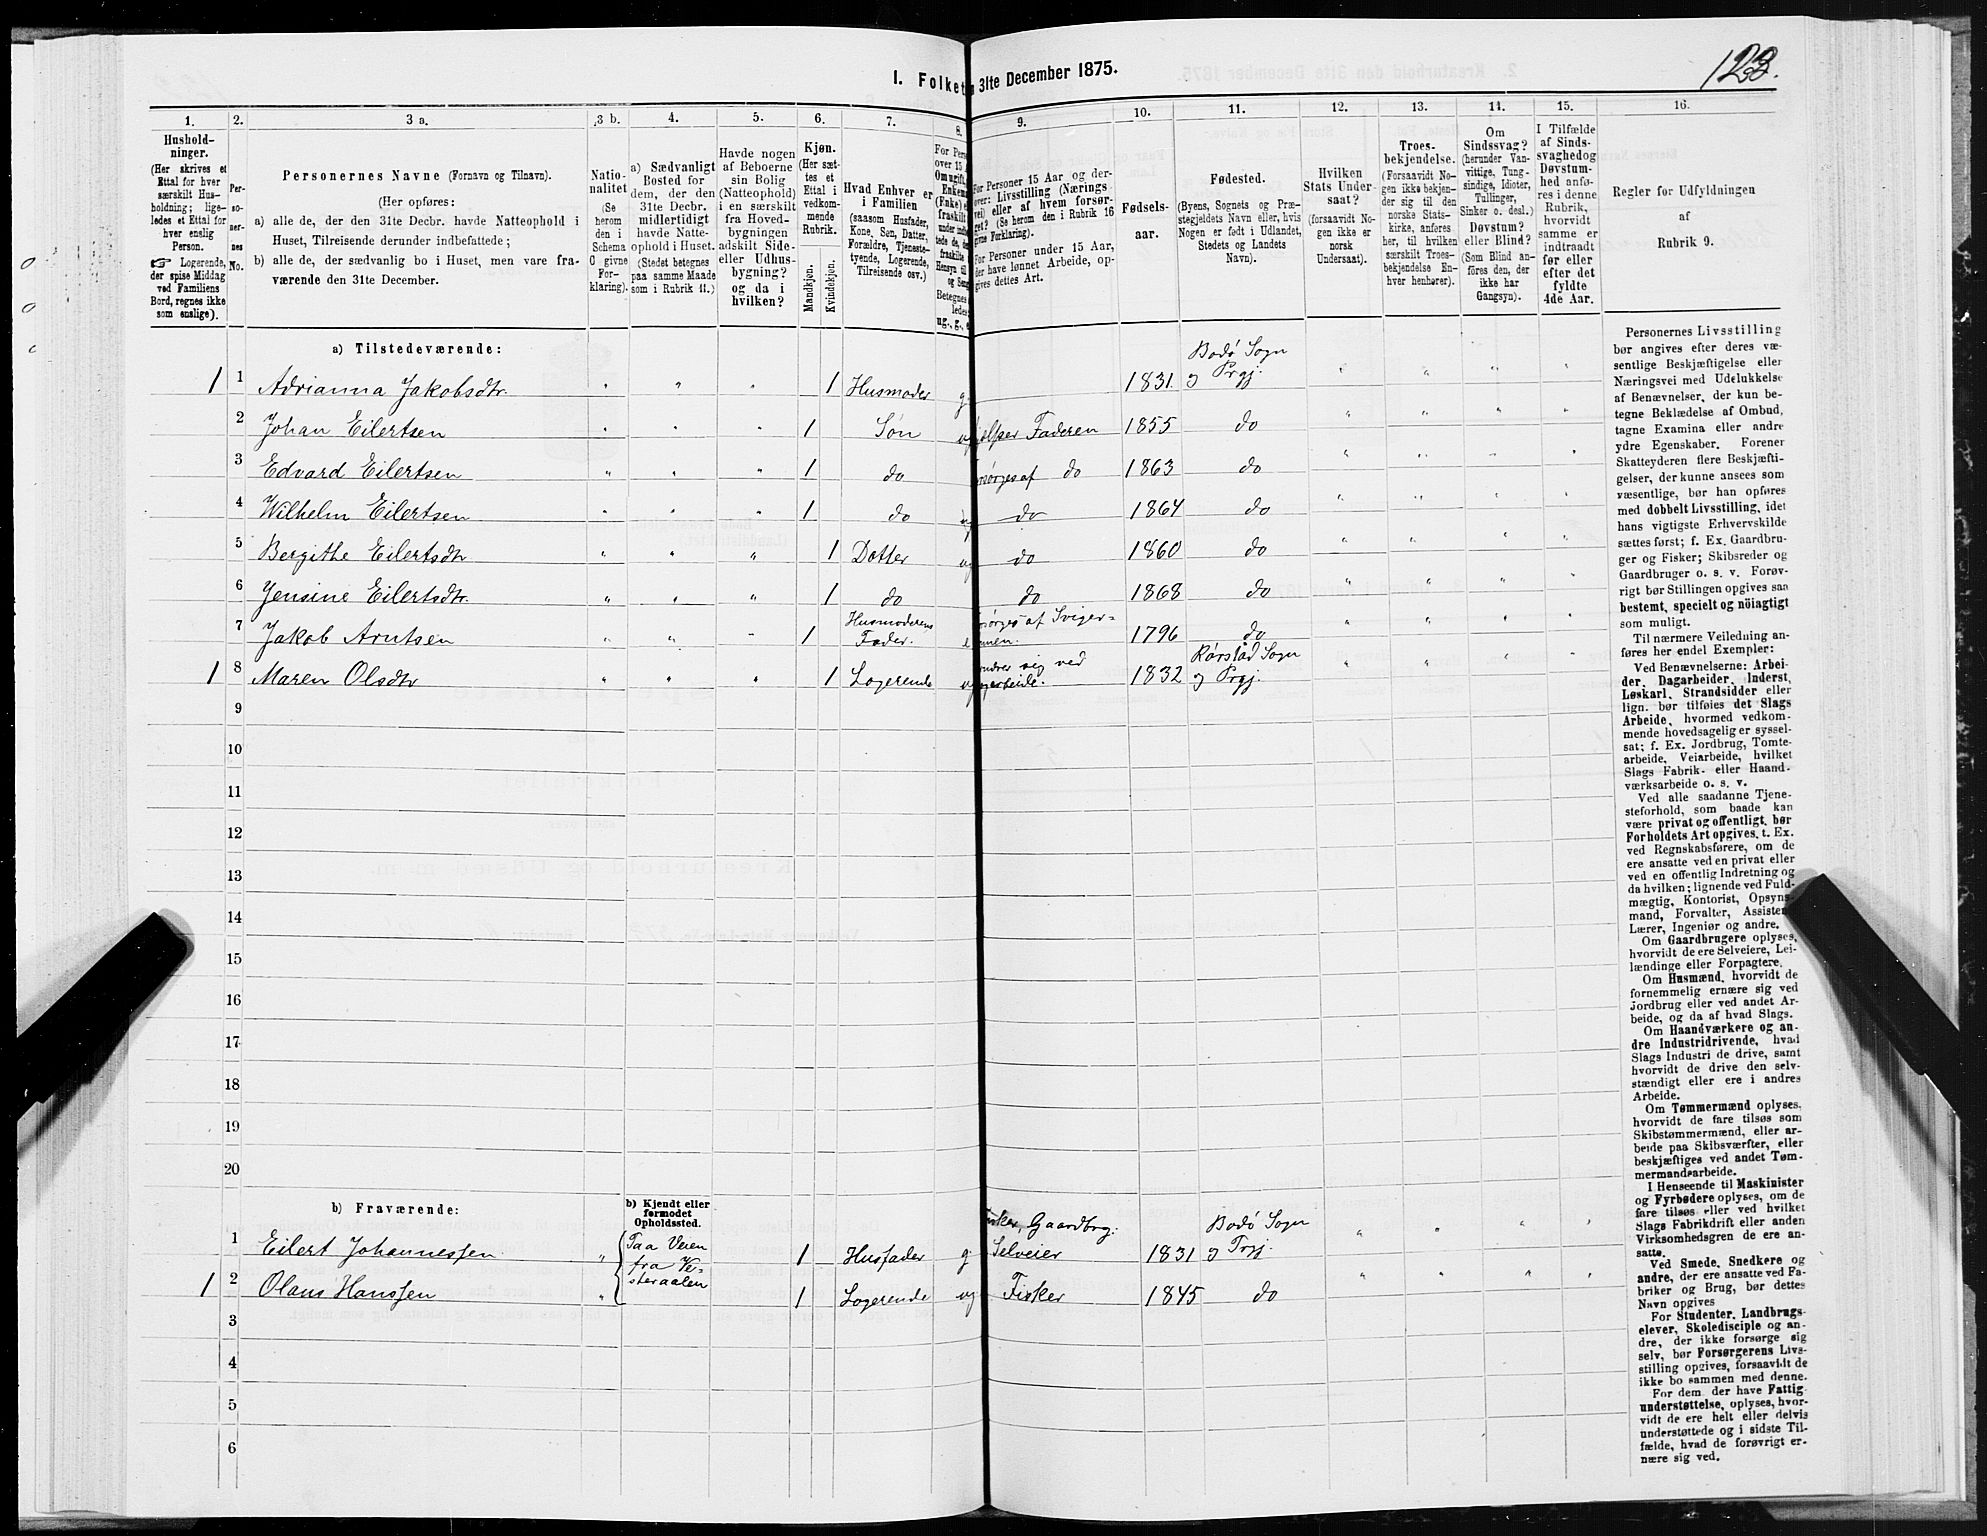 I. Folket
31te December 1875.
123.
1.
2.
3 a.
3 b.
4.
5.
6.
7.
8.
9.
10.
11.
12.
13.
14.
15.
16.
Hushold-
ninger.
(Her skrives et
Ettal for hver
særskilt Hus-
holdning; lige-
ledes et Ettal for
hver enslig
Person.
☞ Logerende,
der spise Middag
ved Familiens
Bord, regnes ikke
som enslige).
Per-
so-
ner-
nes
No.
Personernes Navne (Fornavn og Tilnavn).
(Her opføres:
a) alle de, der den 31te Decbr. havde Natteophold i
Huset, Tilreisende derunder indbefattede;
b) alle de, der sædvanlig bo i Huset, men vare fra-
værende den 31te December.
Natio-
nalitet
(Se
herom
den i
Schema
C givne
For-
klaring).
a) Sædvanligt
Bosted for
dem, der den
31te Decbr.
midlertidigt
havde Natte-
ophold i Huset.
(Stedet betegnes
paa samme Maade
som i Rubrik 11.)
Havde nogen
af Beboerne
sin Bolig
(Natteophold)
i en særskilt
fra Hoved-
bygningen
adskilt Side-
eller Udhus-
bygning?
og da i
hvilken?
Kjøn.
(Her sæt-
tes et
Ettal i
vedkom-
mende
Rubrik.
Mandkjøn.
Kvindekjøn.
Hvad Enhver er
i Familien
(saasom Husfader,
Kone, Søn, Datter,
Forældre, Tjeneste-
tyende, Logerende,
Tilreisende osv.)
For Pers
over 15
Omugift,
Enkem
(Enke) e
fraskilt
under indb
tede de, de
fraskilte
Hensyn til
og Sen
Betegnes
ledes:
ug., g., e
For Personer 15 Aar og der-
over: Livsstilling (Nærings
vei) eller af hvem forsør-
get? (Se herom den i Rubrik 16
givne Forklaring).
For Personer under 15 Aar,
der have lønnet Arbeide, op-
gives dettes Art.
Fødsels-
aar.
Fødested.
(Byens, Sognets og Præ-
stegjeldets Navn eller, hvis
Nogen er født i Udlandet,
Stedets og Landets
Navn).
Hvilken
Stats Under-
saat?
(forsaavidt No-
gen ikke er
norsk
Undersaat).
Troes-
bekjendelse.
(Forsaavidt No-
gen ikke bekjen-
der sig til den
norske Stats-
kirke, anføres
her, til hvilken
særskilt Troes-
bekjendelse En-
hver henhører).
Om
Sindssvag?
(herunder Van-
vittige, Tung-
sindige, Idioter,
Tullinger,
Sinker o. desl.)
Døvstum?
eller Blind?
(Som Blind an-
føres den, der
ikke har
Gangsyn).
I Tilfælde
af Sinds-
svaghed og
Døvstum-
hed anfø-
res i denne
Rubrik,
hvorvidt
samme er
indtraadt
før eller
efter det
fyldte
4de Aar.
Regler for Udfyldningen
af
Rubrik 9.
a) Tilstedeværende:
1 1 Adrianna Jakobsdtr. " " " 1 Husmoder g. 1831. Bodø Sogn
og Prgj. " " " "
2 Johan Eilertsen " " " 1 Søn ug hjelper Faderen 1855 do " " " "
3 Edvard Eilertsen " " " 1 do orsørges af do 1863 do " " " "
4 Wilhelm Eilertsen " " " 1 do do 1864 do " " " "
5 Bergithe Eilertsdtr " " " 1 Datter ug do 1860 do " " " "
6 Jensine Eilertsdtr. " " " 1 do do 1868 do " " " "
7 Jakob Arntsen " " " 1 Husmoderens
Fader. e orsørges af Sviger=
ønnen. 1796 do " " " "
1 8 Maren Olsdtr " " " 1 Logerende ug ernærer sig ved
agarbeide. 1832 Rørstad Sogn
og Prgj. " " " "
9
10
11
12
13
14
15
16
17
18
19
20
b) Fraværende:
b) Kjendt eller
formodet
Opholdssted.
1 Eilert Johannessen " Paa Veien
fra Ve-
steraalen 1 Husfader g. isker, Gaardbrg.
Selveier 1831 Bodø Sogn
og Prgj. " " " "
1 2 Olaus Hanssen " 1 Logerende ug Fisker 1845 do " " " "
3
4
5
6
Personernes Livsstilling
bør angives efter deres væ-
sentlige Beskjæftigelse eller
Næringsvei med Udelukkelse
af Benævnelser, der kun be-
tegne Beklædelse af Ombud,
tagne Examina eller andre
ydre Egenskaber. Forener
Skatteyderen flere Beskjæfti-
gelser, der kunne ansees som
væsentlige, bør han opføres
med dobbelt Livsstilling, idet
hans vigtigste Erhvervskilde
sættes først; f. Ex. Gaardbru-
ger og Fisker; Skibsreder og
Gaardbruger o. s. v. Forøv-
rigt bør Stillingen opgives saa
bestemt, specielt og nöiagtigt
som muligt.
Til nærmere Veiledning an-
føres her endel Exempler:
Ved Benævnelserne: Arbei-
der, Dagarbeider, Inderst,
Løskarl, Strandsidder eller
lign. bør tilføies det Slags
Arbeide, hvormed vedkom-
mende hovedsagelig er syssel-
sat; f. Ex. Jordbrug, Tomte-
arbeide, Veiarbeide, hvilket
Slags Fabrik- eller Haand-
værksarbeide o. s. v.
Ved alle saadanne Tjene-
steforhold, som baade kan
være privat og offentligt, bør
Forholdets Art opgives, t. Ex.
ved Regnskabsførere, om de
ere ansatte ved en privat eller
ved en offentlig Indretning og
da hvilken; lignende ved Fuld-
mægtig, Kontorist, Opsyns-
mand, Forvalter, Assistent,
Lærer, Ingeniør og andre.
Om Gaardbrugere oplyses,
hvorvidt de ere Selveiere, Lei-
lændinge eller Forpagtere.
Om Husmænd, hvorvidt de
fornemmelig ernære sig ved
Jordbrug eller ved andet Ar-
beide, og da af hvad Slags.
Om Haandværkere og an-
dre Industridrivende, hvad
Slags Industri de drive, samt
hvorvidt de drive den selv-
stændigt eller ere i andres
Arbeide.
Om Tømmermænd oplyses,
hvorvidt de fare tilsøs som
Skibstømmermænd, eller ar-
beide paa Skibsværfter, eller
beskjæftiges ved andet Tøm-
mermandsarbeide.
I Henseende til Maskinister
og Fyrbødere oplyses, om de
fare tilsøs eller ved hvilket
Slags Fabrikdrift eller anden
Virksomhedsgren de ere an-
satte.
Ved Smede, Snedkere og
andre, der ere ansatte ved Fa-
briker og Brug, bør dettes
Navn opgives
For Studenter, Landbrugs-
elever, Skoledisciple og an-
dre, der ikke forsørge sig
selv, bør Forsørgerens Livs-
stilling opgives, forsaavidt de
ikke bo sammen med denne.
For dem, der have Fattig-
understøttelse, oplyses, hvor-
vidt de ere helt eller delvis
understøttede og i sidste Til-
fælde, hvad de forøvrigt er-
nære sig ved.